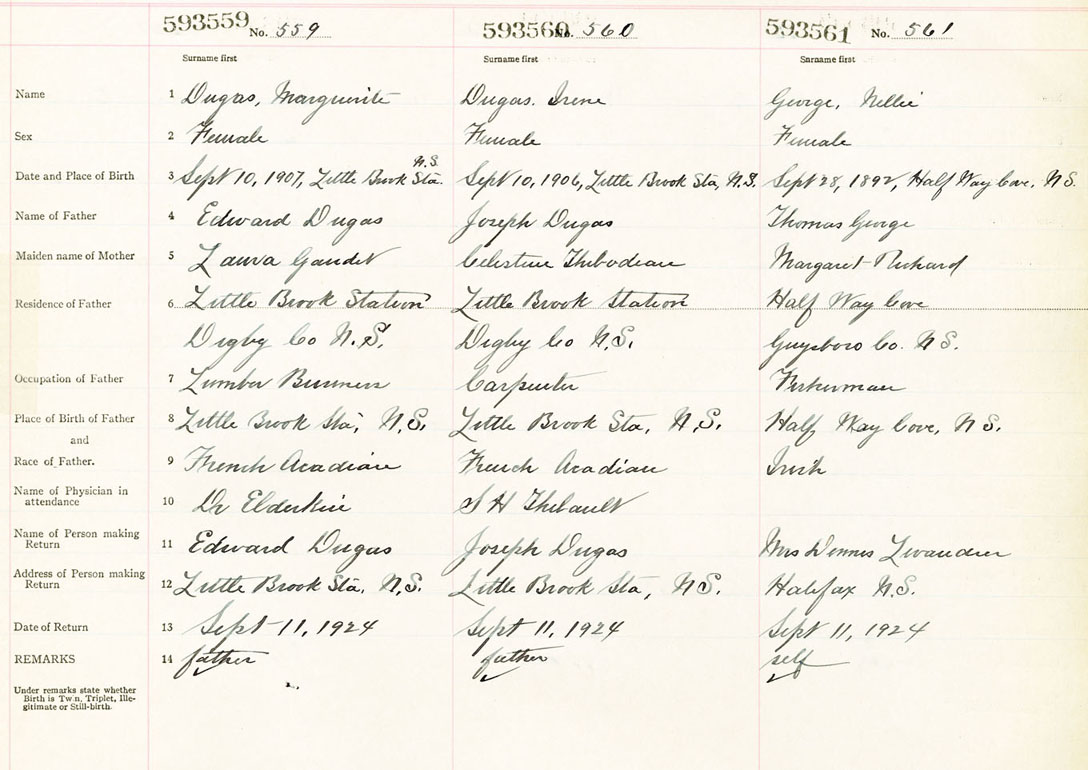 593559 No. 559 593560 No. 560 593561 No. 561
Surname first Surname first Surname first
Name 1 Dugas, Marguerite Dugas. Irene George, Nellie
Sex 2 Female Female Female
N.S.
Date and Place of Birth 3 Sept 10, 1907, Little Brook Sta. Sept 10, 1906, Little Brook Sta, N.S. Sept 28, 1892, Half Way Cove, N S.
Name of Father 4 Edward Dugas Joseph Dugas Thomas George
Maiden name of Mother 5 Laura Gaudet Celestine Thibodeau Margaret Richard
Residence of Father 6 Little Brook Station Little Brook Station Half Way Cove
Digby Co N.S. Digby Co N.S. Guysboro Co. N S.
Occupation of Father 7 Lumber Business Carpenter Fisherman
Place of Birth of Father 8 Little Brook Sta, N.S. Little Brook Sta, N.S. Half Way Cove, N S.
and
Race of Father. 9 French Acadian French Acadian Irish
Name of Physician in
attendance 10 Dr Elderkin S H Thibault
Name of Person making
Return 11 Edward Dugas Joseph Dugas Mrs Dennis
Address of Person making
Return 12 Little Brook Sta, N.S. Little Brook Sta, N S. Halifax N.S.
Date of Return 13 Sept 11, 1924 Sept 11, 1924 Sept 11, 1924
REMARKS 14 father father self
Under remarks state whether
Birth is Twin, Triplet, Ille-
gitimate or Still-birth.